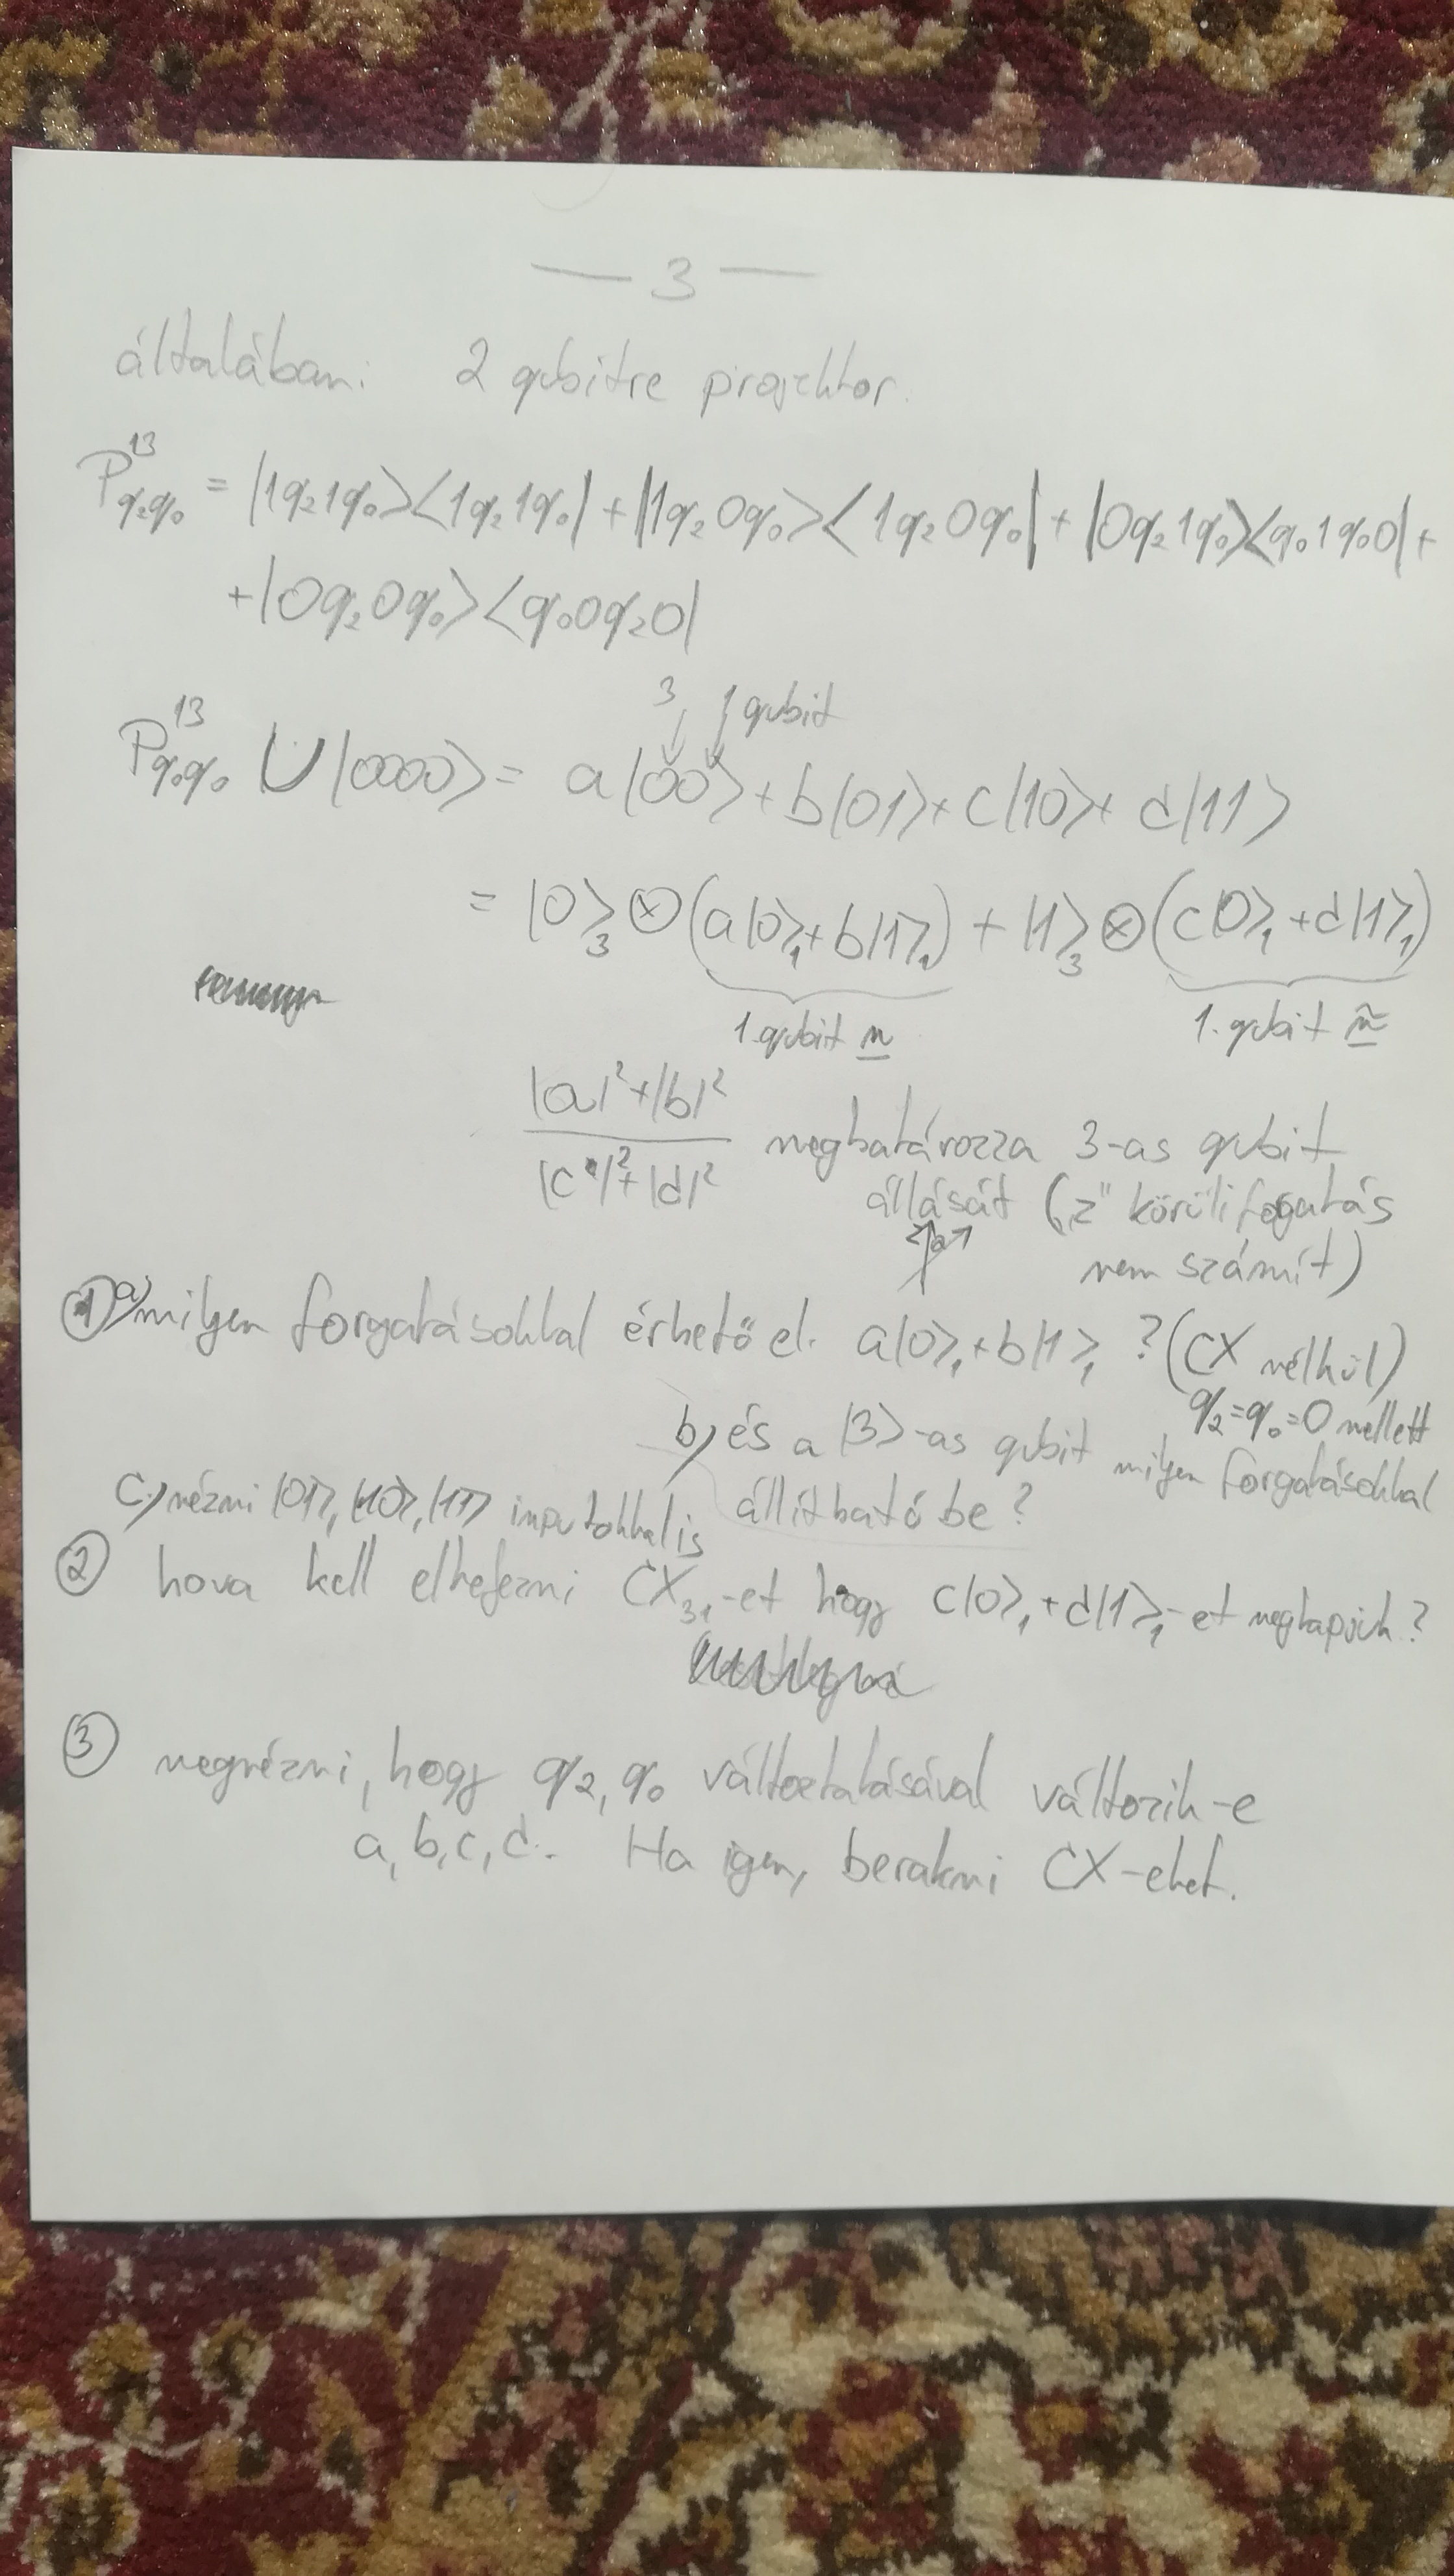 — 3 —
általában: 2 qubitre projektor.
P¹³_{q₂q₀} = |1q₂1q₀><1q₂1q₀| + |1q₂0q₀><1q₂0q₀| + |0q₂1q₀><q₀1q₀0| +
+ |0q₂0q₀><q₀0q₂0|
3 1 qubit
P¹³_{q₀q₀} U |0000> = a|00> + b|01> + c|10> + d|11>
= |0>₃ ⊗ (a|0>₁ + b|1>₁) + |1>₃ ⊗ (c|0>₁ + d|1>₁)
1. qubit n 1. qubit ñ
|a|² + |b|²
|c|² + |d|²
meghatározza 3-as qubit
állását („z" körüli fogatás
nem számít)
① a) milyen forgatásokkal érhető el. a|0>₁ + b|1>₁ ? (CX nélkül)
q₂=q₀=0 mellett
b) és a |3>-as qubit milyen forgatásokkal
állítható be?
c.) nézni |01>, |10>, |11> inputokkal is
② hova kell elhelyezni CX₃₁-et hogy c|0>₁ + d|1>₁-et megkapjuk?
③ megnézni, hogy q₂, q₀ változtatásával változik-e
a, b, c, d. Ha igen, berakni CX-eket.